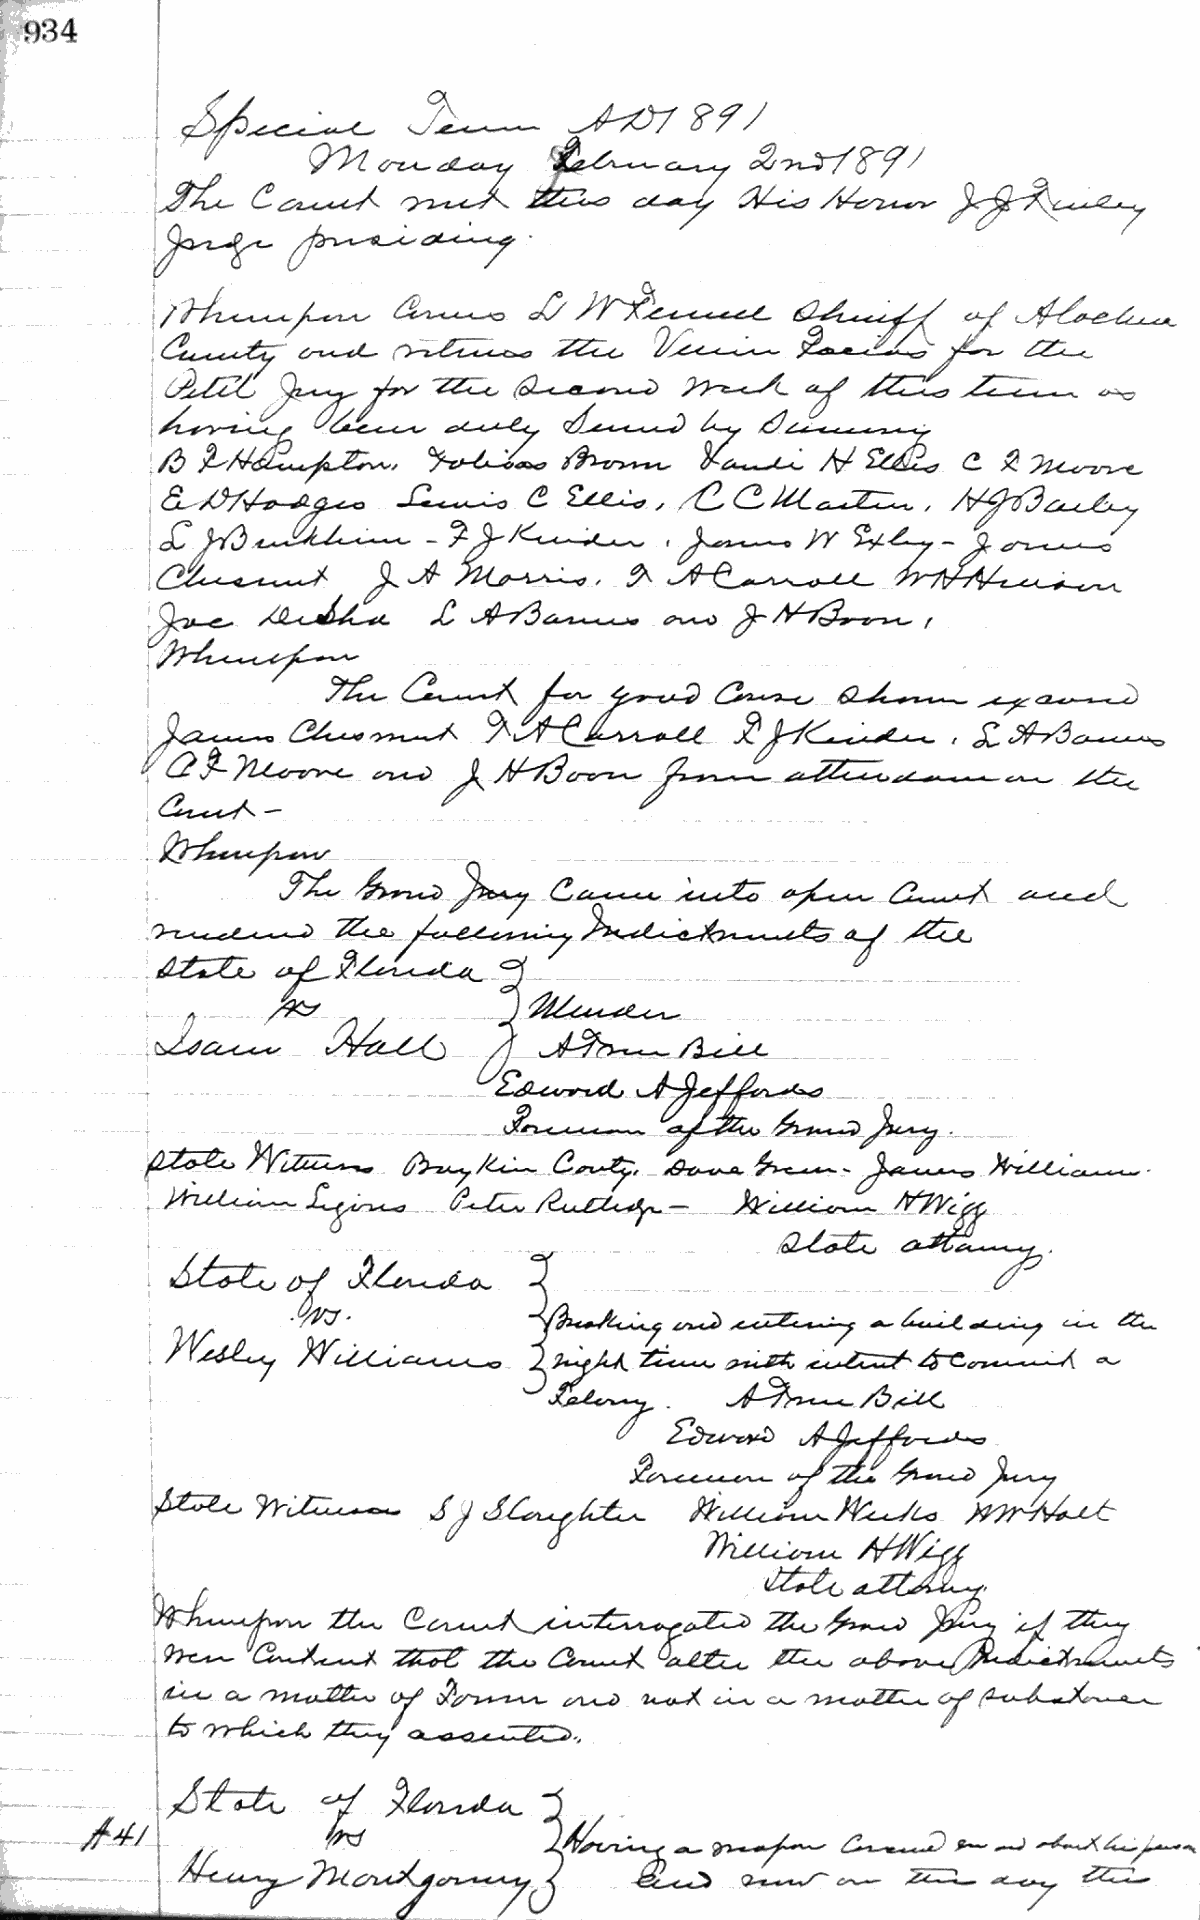 934
Special Term AD 1891
Monday February 2nd 1891
The Court met this day His Honor J J Finley
Judge presiding.
Whereupon Comes L W Fennell Sheriff of Alachua
County and returns the Venire Facias for the
Petit Jury for the Second Week of this term as
having been duly Served by Summoning
B F Hampton, Tobias Brown H Ellis C F Moore
E D Hodges Lewis C Ellis, C C Martin, H J Bailey
L J Burkhim - F J Kinder, James W Exley - James
Chesnut J A Morris, F A Carroll W H
Joe DeSha L A Barnes and J H Boon,
Whereupon
The Court for good Cause Shown excused
James Chesnut F A Carroll F J Kinder, L A Barnes
C F Moore and J H Boon from attendance on the
Court -
Whereupon
The Grand Jury Came into open Court and
rendered the following Indictments of the
State of Florida
vs
Murder
Isam Hall
A True Bill
Edward A Jeffords
Foreman of the Grand Jury.
State Witness Couty, Dave Green - James Williams.
William Peter Rutledge - William H Wigg
State attorney.
State of Florida
vs.
Breaking and entering a building in the
Wesley Williams
night time with intent to Commit a
Felony. A True Bill
Edward A Jeffords
Foreman of the Grand Jury
State Witnesses S J Slaughter William Weeks W W Holt
William H Wigg
State attorney.
Whereupon the Court interrogated the Grand Jury if they
were Content that the Court alter the above Indictments
in a matter of Form and not in a matter of substance
to which they assented.
State of Florida
#41
vs
Having a weapon Concealed on and about his person
Henry Montgomery
And now on this day this